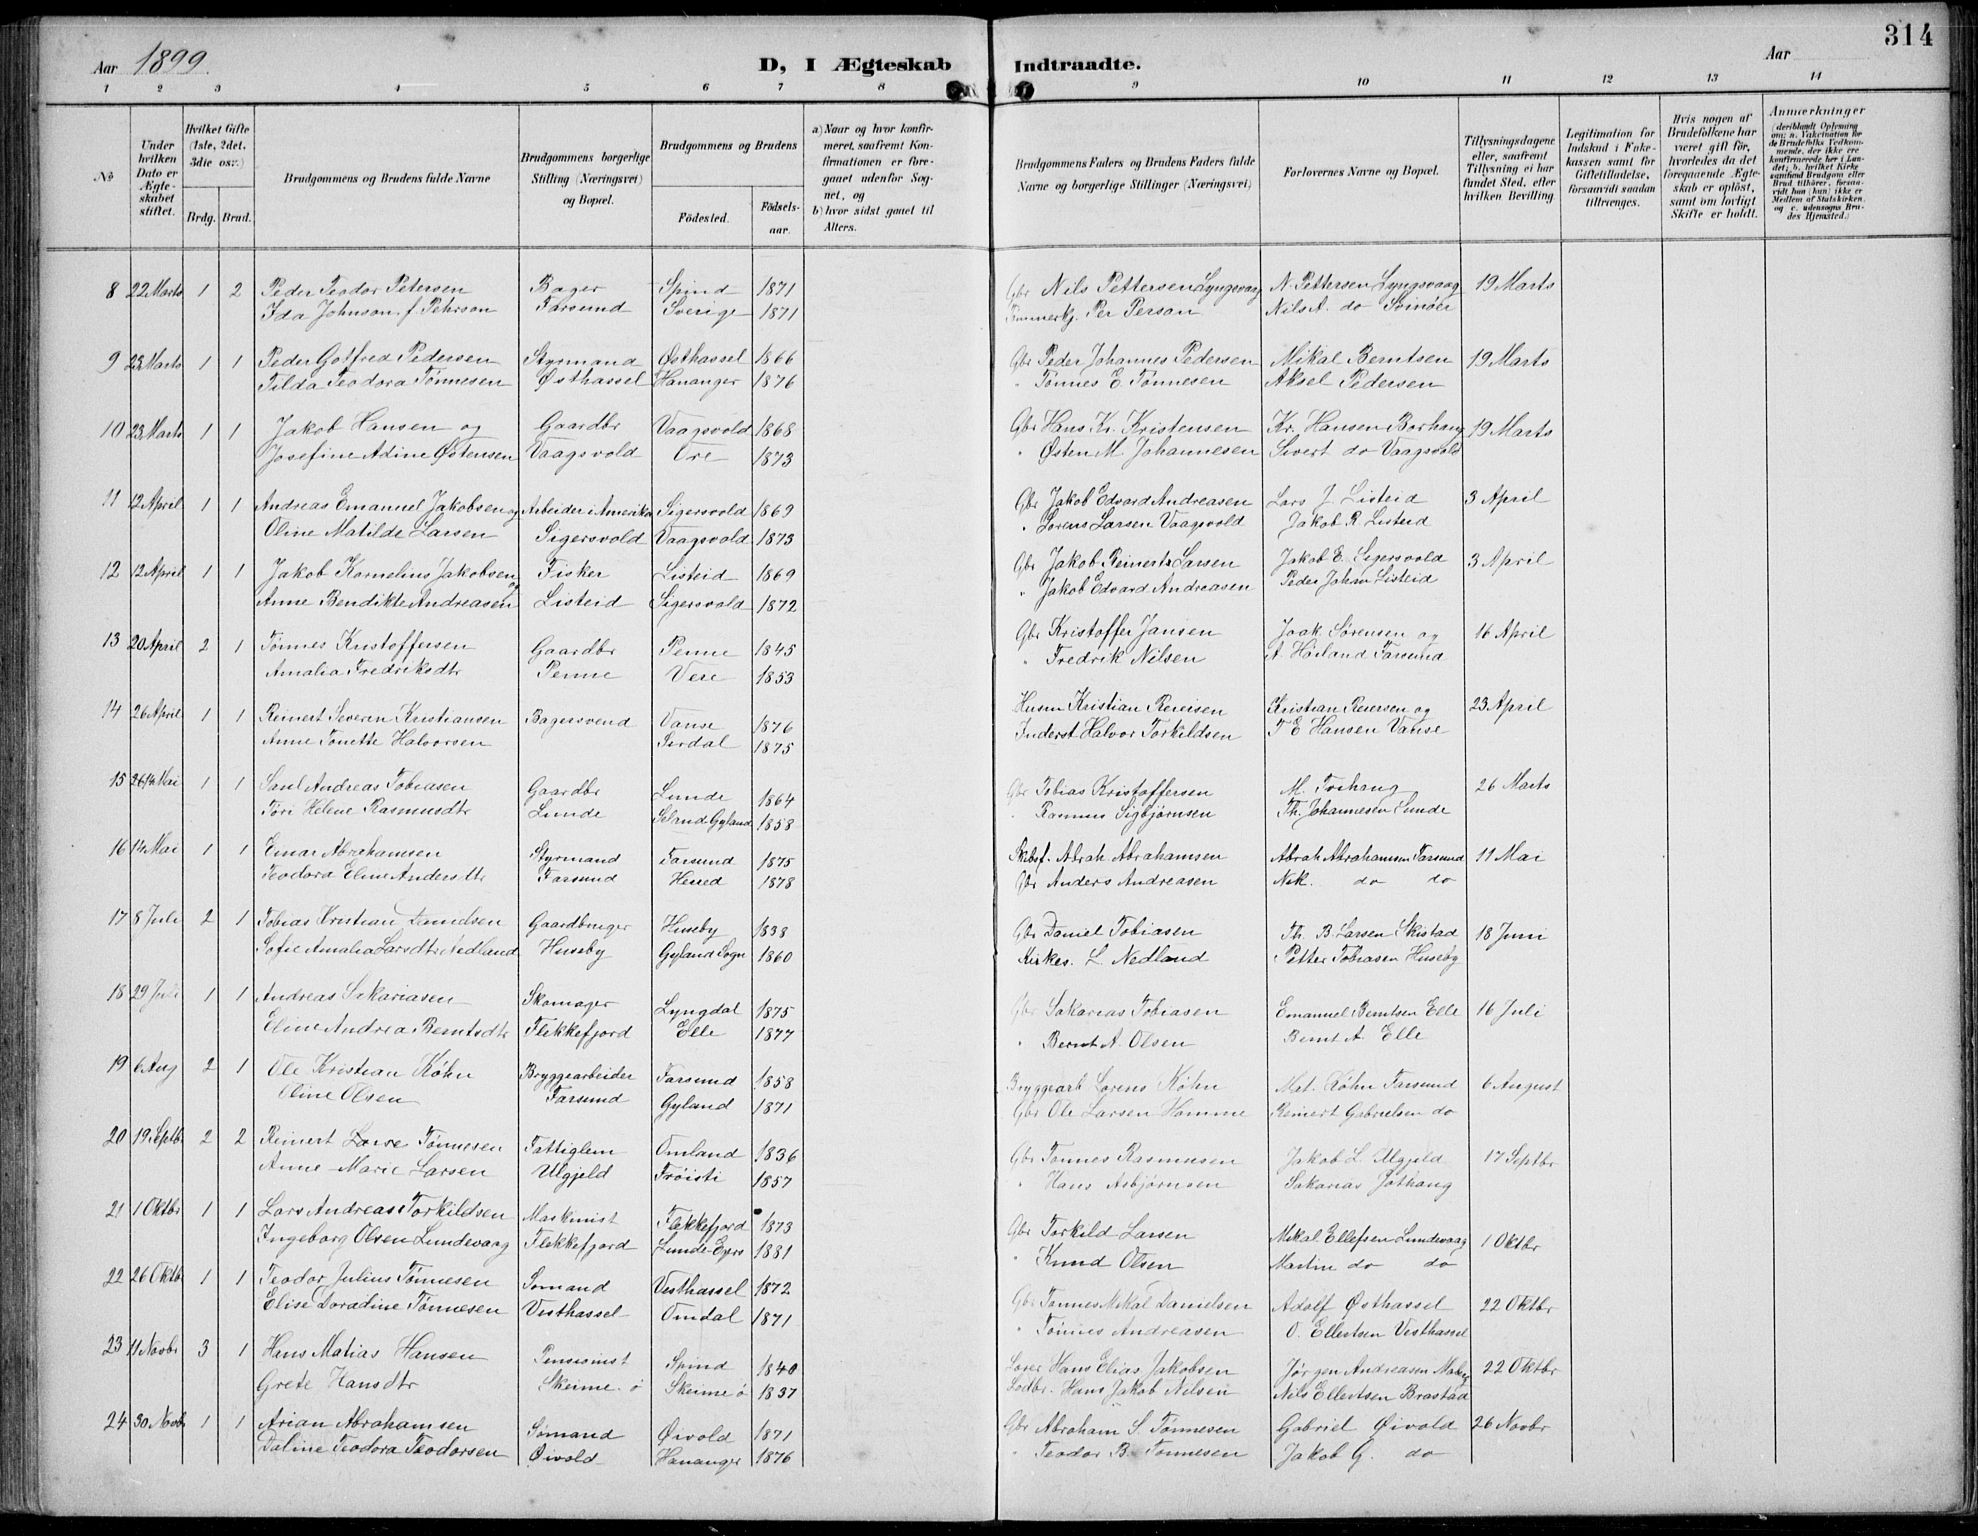 Aar 1899. D, I Ægteskab Indtraadte. Aar 314
1 2 3 4 5 6 7 8 9 10 11 12 13 14
No
Under hvilken Dato er Ægteskabet stiftet.
Hvilket Gifte (1ste, 2det, 3die osv.)
Brdg. Brud.
Brudgommens og Brudens fulde Navne
Brudgommens borgerlige Stilling (Næringsvei) og Bopæl.
Brudgommens og Brudens
Fødested. Fødsels-aar.
a) Naar og hvor konfirmeret, saafremt Konfirmationen er foregaaet udenfor Sognet, og
b) hvor sidst gaaet til Alters.
Brudgommens Faders og Brudens Faders fulde Navne og borgerlige Stillinger (Næringsvei)
Forlovernes Navne og Bopæl.
Tillysningsdagene eller, saafremt Tillysning ei har fundet Sted, efter hvilken Bevilling
Legitimation for Indskud i Enkekassen samt for Giftetilladelse, forsaavidt saadan tiltrænges.
Hvis nogen af Brudefolkene har været gift før, hvorledes da det foregaaende Ægteskab er opløst, samt om lovligt Skifte er holdt.
Anmærkninger
8 22 Marts 1 2 Peder Teodor Petersen Bager Spind 1871 Gbr Nils Pettersen Lyngsvaag N. Pettersen Lyngsvaag 19 Marts
Ida Johnson f. Pehrson Farsund Sverige 1871 Tømmerkj. Per Person Nils A. do Svinøer
9 23 Marts 1 1 Peder Gotfred Pedersen Styrmand Østhassel 1866 Gbr Peder Johannes Pedersen Mikal Berntsen 19 Marts
Tilda Teodora Tønnesen Østhassel Hananger 1876 " Tønnes E. Tønnesen Aksel Pedersen
10 23 Marts 1 1 Jakob Hansen og Gaardbr Vaagsvold 1868 Gbr Hans Kr. Kristensen Kr. Hansen Borhaug 19 Marts
Josefine Adine Østensen Vaagsvold Ore 1873 " Østen M. Johannesen Sivert do Vaagsvold
11 12 April 1 1 Andreas Emanuel Jakobsen og Arbeider i Amerika Sigersvold 1869 Gbr Jakob Edvard Andreasen Lars J. Listeid 3 April
Oline Matilde Larsen Sigersvold Vaagsvold 1873 " Lorens Larsen Vaagsvold Jakob R. Listeid
12 12 April 1 1 Jakob Kornelius Jakobsen og Fisker Listeid 1869 Gbr Jakob Reinertz Larsen Jakob E. Sigersvold 3 April
Anne Bendikte Andreasen Listeid Sigersvold 1872 " Jakob Edvard Andreasen Peder Jakob Listeid
13 20 April 2 1 Tønnes Kristoffersen Gaardbr Penne 1845 Gbr Kristoffer Jansen Joak Sørensen og 16 April
Amalia Fredriksdtr Penne Vere 1853 " Fredrik Nilsen A. Høiland Farsund
14 26 April 1 1 Reinert Severin Kristiansen Bagersvend Vanse 1876 Husm Kristian Reiersen Kristian Reiersen og 23 April
Anne Tonette Halvorsen Sirdal 1875 Inderst Halvor Torkildsen T E Hansen Vanse
15 14 Mai 1 1 Saul Andreas Tobiasen Gaardbr Lunde 1864 Gbr Tobias Kristoffersen M. Tvihaug 26 Marts
Tori Helene Rasmusdtr Lunde Seland Gyland 1858 " Rasmus Sigbjørnsen Th. Johannesen Lunde
16 14 Mai 1 1 Einar Abrahamsen Styrmand Farsund 1875 Skibsf. Abrah Abrahamsen Abrah Abrahamsen Farsund 11 Mai
Teodora Eline Andersdtr Farsund Herred 1878 Gbr Anders Andreasen Nik. do do
17 8 Juli 2 1 Tobias Kristian Danielsen Gaardbruger Huseby 1838 Gbr Daniel Tobiasen Th. B. Larsen Skistad 18 Juni
Sofie Amalia Larsdtr Nedland Huseby Gyland Sogn 1860 Kirkes. L. Nedland Petter Tobiasen Huseby
18 29 Juli 1 1 Andreas Sakariasen Skomager Lyngdal 1875 Gbr Sakarias Tobiasen Emanuel Berntsen Elle 16 Juli
Eline Andrea Berntsdtr Flekkefjord Elle 1877 " Bernt A. Olsen Bernt A. Elle
19 6 Aug 2 1 Ole Kristian Køhn Bryggearbeider Farsund 1858 Bryggearb Lorens Køhn Mat. Køhn Farsund 6 August
Oline Olsen Farsund Gyland 1871 Gbr Ole Larsen Homme Reinert Gabrielsen do
20 19 Septbr 2 2 Reinert Tønnesen Fattiglem Omland 1836 Gbr Tønnes Rasmusen Jakob L. Ulgjeld 17 Septbr
Anne Marie Larsen Ulgjeld Frøisti 1857 " Hans Asbjørnsen Sakarias Jøthaug
21 1 Oktbr 1 1 Lars Andreas Torkildsen Maskinist Flekkefjord 1873 Gbr Torkild Larsen Mikal Ellefsen Lundevaag 1 Oktbr
Ingeborg Olsen Lundevaag Flekkefjord Lunde 1881 " Knud Olsen Martin do do
22 26 Oktb 1 1 Teodor Julius Tønnesen Sømand Vesthassel 1872 Gbr Tønnes Mikal Danielsen Adolf Østhassel 22 Oktbr
Elise Doradine Tønnesen Vesthassel Omdal 1871 " Tønnes Andreasen O. Ellertsen Vesthassel
23 11 Novbr 3 1 Hans Matias Hansen Pensionist Spind 1840 Hans Elias Jakobsen Jørgen Andreasen 22 Oktbr
Grete Hansdtr Skeime ø Skeime ø 1837 Hans Jakob Nilsen Nils Ellertsen Brastad
24 30 Novb 1 1 Arian Abrahamsen Sømand Øivold 1871 Gbr Abraham S. Tønnesen Gabriel Øivold 26 Novbr
Daline Teodora Teodorsen Øivold Hananger 1876 " Teodor B. Tønnesen Jakob G. do